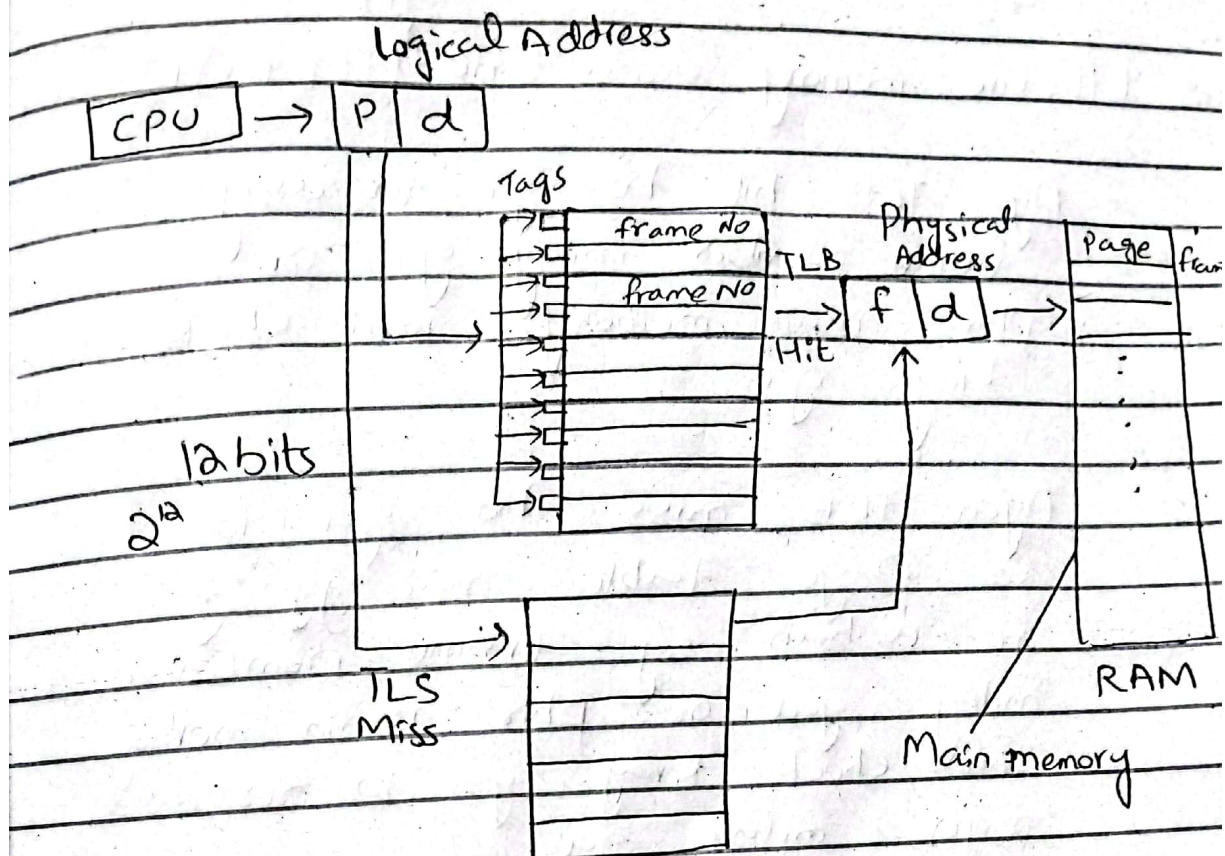 Logical Address
CPU
P d
Tags
frame No
frame No
TLB
Hit
Physical
Address
f d
Page
12 bits
2^12
TLS
Miss
RAM
Main memory